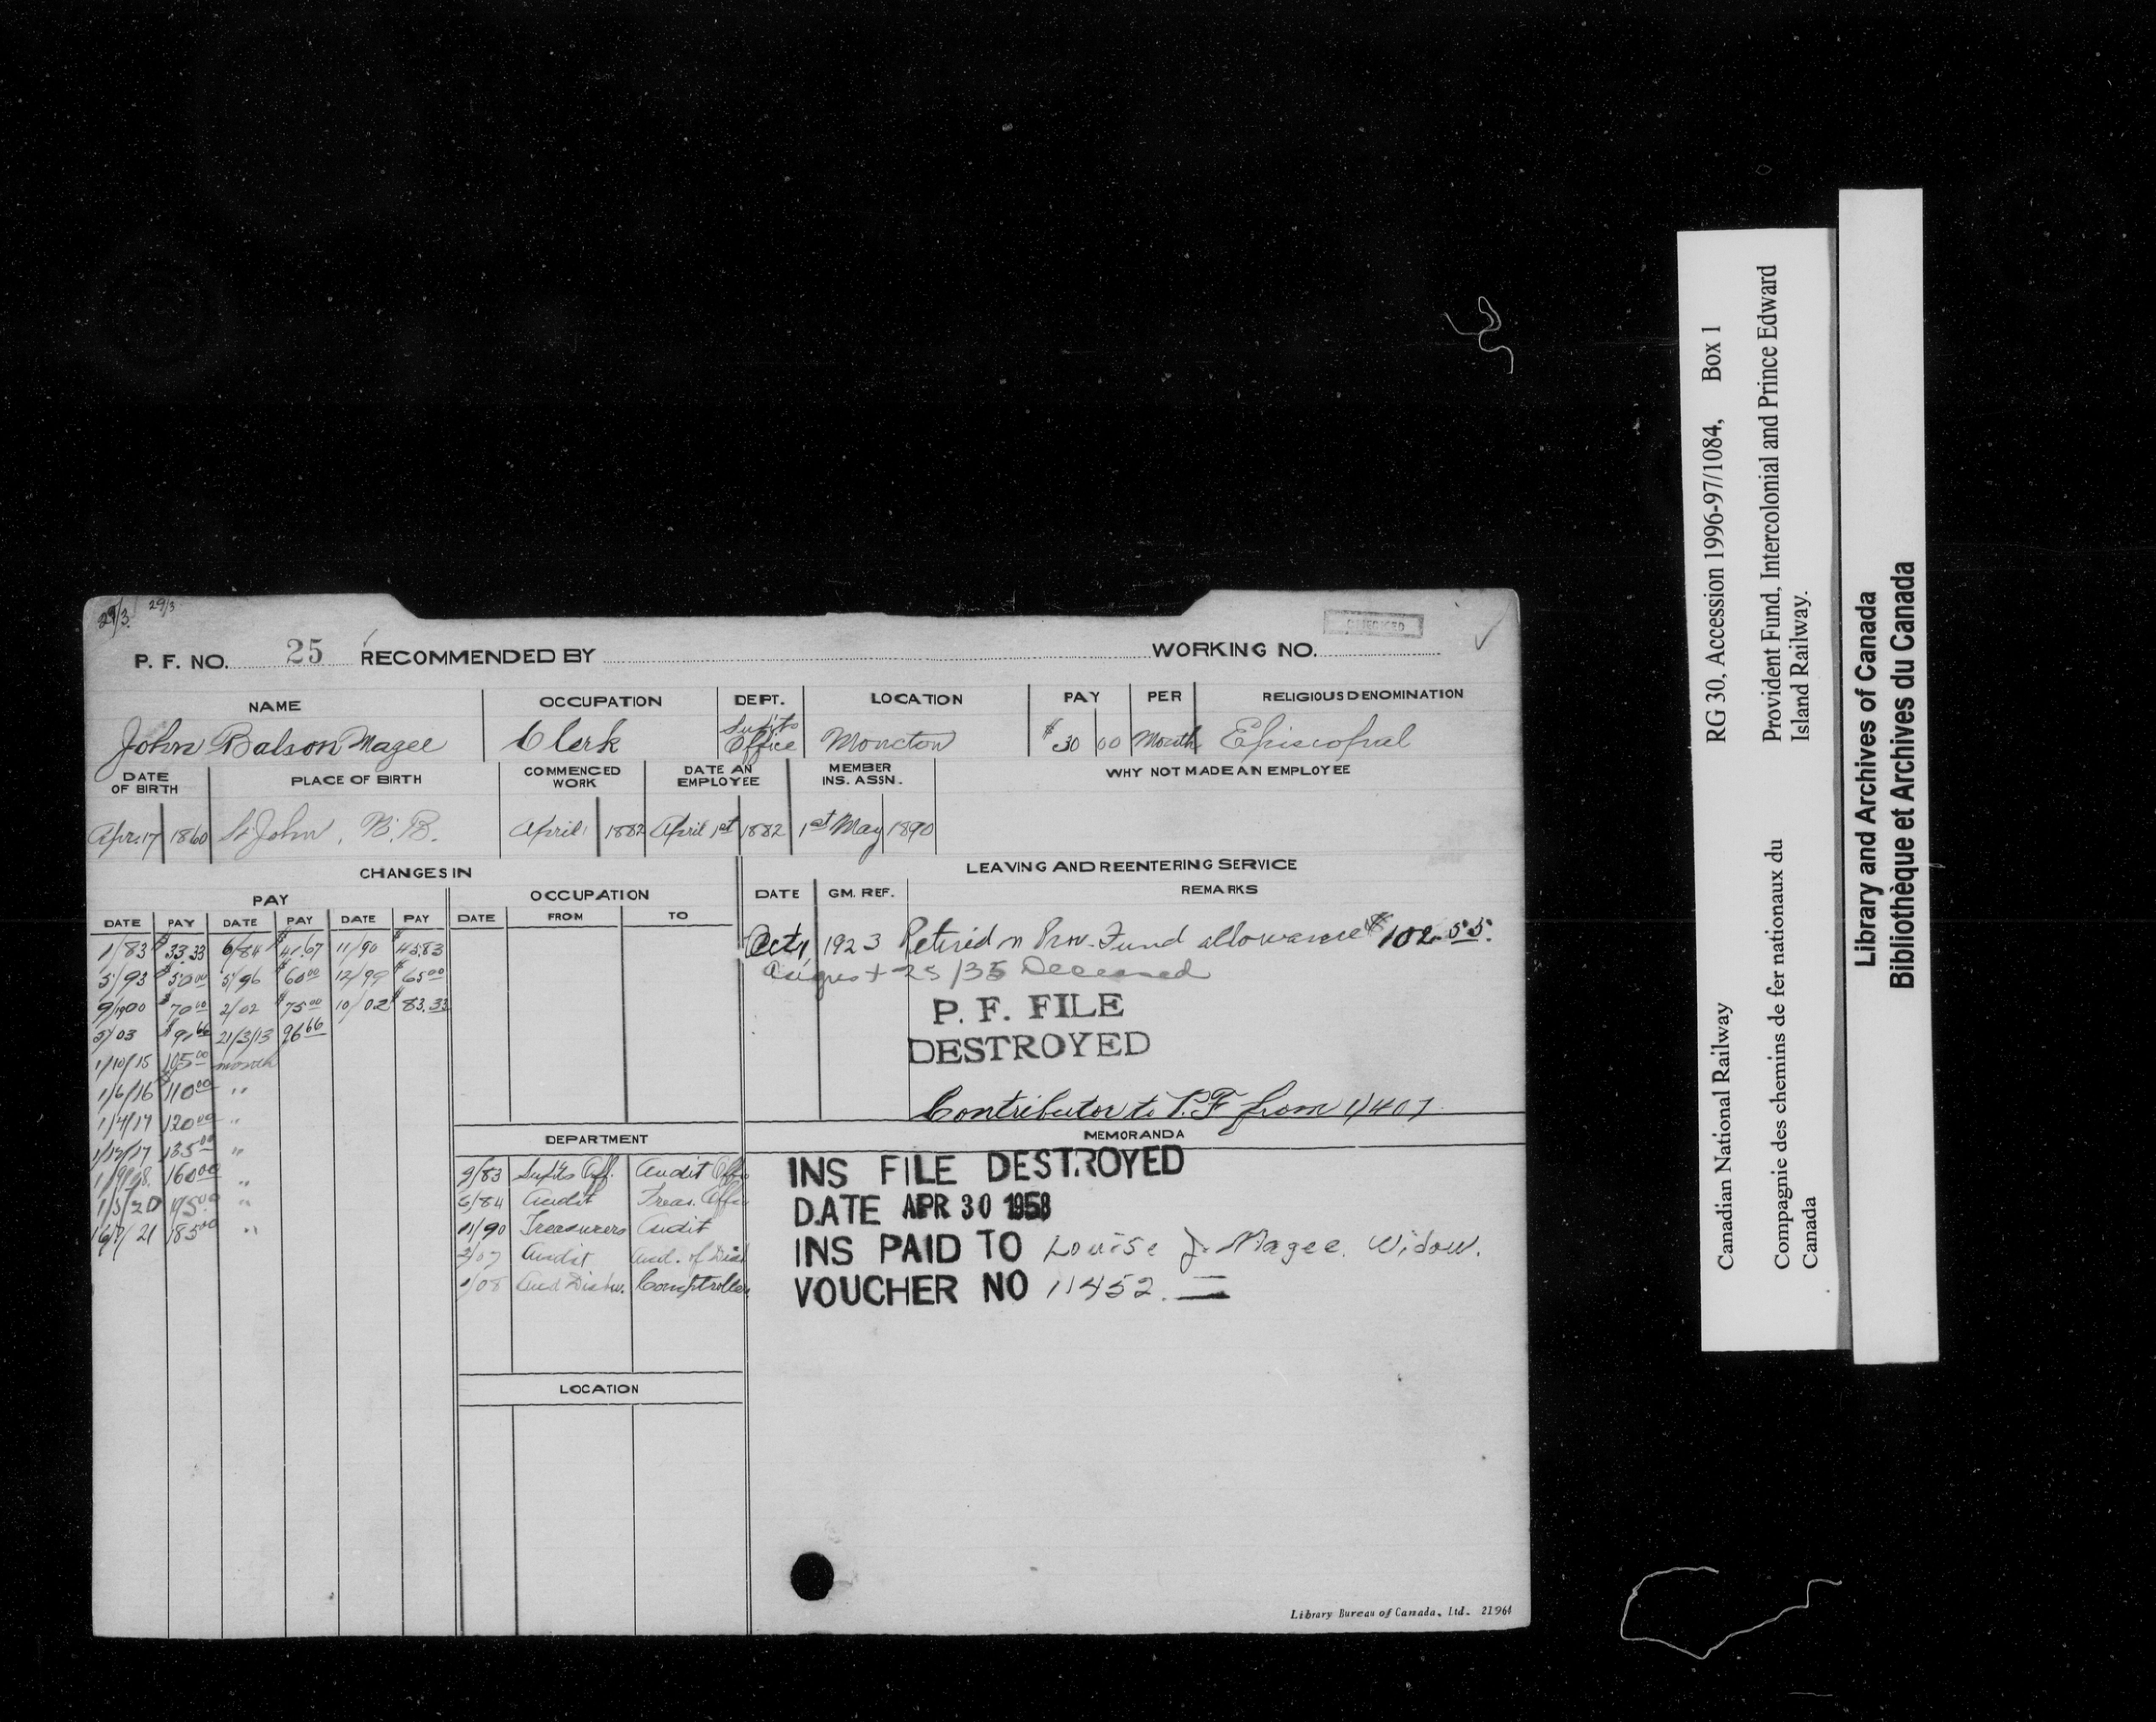 29/3 29/3
CHECKED
P. F. NO. 25 RECOMMENDED BY WORKING NO.
NAME OCCUPATION DEPT. LOCATION PAY PER RELIGIOUS DENOMINATION
John Balson Magee Clerk Office Moncton $30 00 Month Episcopal
DATE OF BIRTH PLACE OF BIRTH COMMENCED WORK DATE AN EMPLOYEE MEMBER INS. ASSN. WHY NOT MADE AN EMPLOYEE
Apr. 17 1860 St John, N.B. April 1 1882 April 1st 1882 1st May 1890
CHANGES IN LEAVING AND REENTERING SERVICE
PAY OCCUPATION DATE GM. REF. REMARKS
DATE PAY DATE PAY DATE PAY DATE FROM TO
1/83 $33.33 6/84 $41.67 11/90 $45.83
5/93 $50.00 5/96 $60.00 12/99 $65.00
9/1900 $70.00 2/02 $75.00 10/02 $83.33
21/3/13 96.66
1/10/15 105.00 month
1/6/16 $110.00 "
1/4/17 120.00 "
1/12/17 135.00 "
160.00 "
1/3/20 "
185.00 "
Oct 1 1923 Retired on Prov. Fund allowance $102.55.
August 25/35 Deceased
P. F. FILE
DESTROYED
Contributor to P.F from 1/4 07
DEPARTMENT
9/83 Audit
6/84 Audit Treas.
11/90 Treasurers Audit
Audit Aud. of
1/08 Comptroller
LOCATION
MEMORANDA
INS FILE DESTROYED
DATE APR 30 1958
INS PAID TO Louise J. Magee. Widow.
VOUCHER NO 11452.
Library Bureau of Canada, Ltd. 21964
Canadian National Railway RG 30, Accession 1996-97/1084, Box 1
Compagnie des chemins de fer nationaux du
Canada
Provident Fund, Intercolonial and Prince Edward
Island Railway.
Library and Archives of Canada
Bibliothèque et Archives du Canada